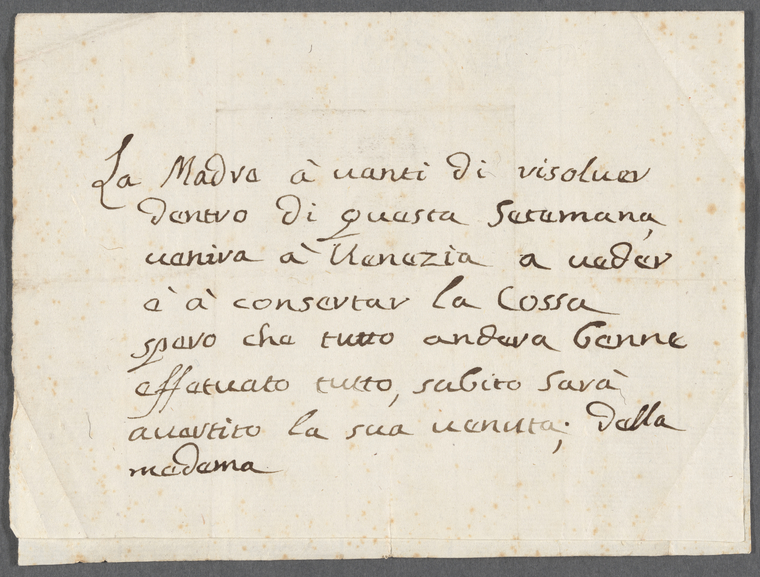 La Madre à uanti di risoluer
dentro di questa Setemana,
uenira à Uenezia a ueder
è à consertar la Cossa
spero che tutto andera benne
effetuato tutto, subito Sarà
auertito la sua uenuta; della
medema